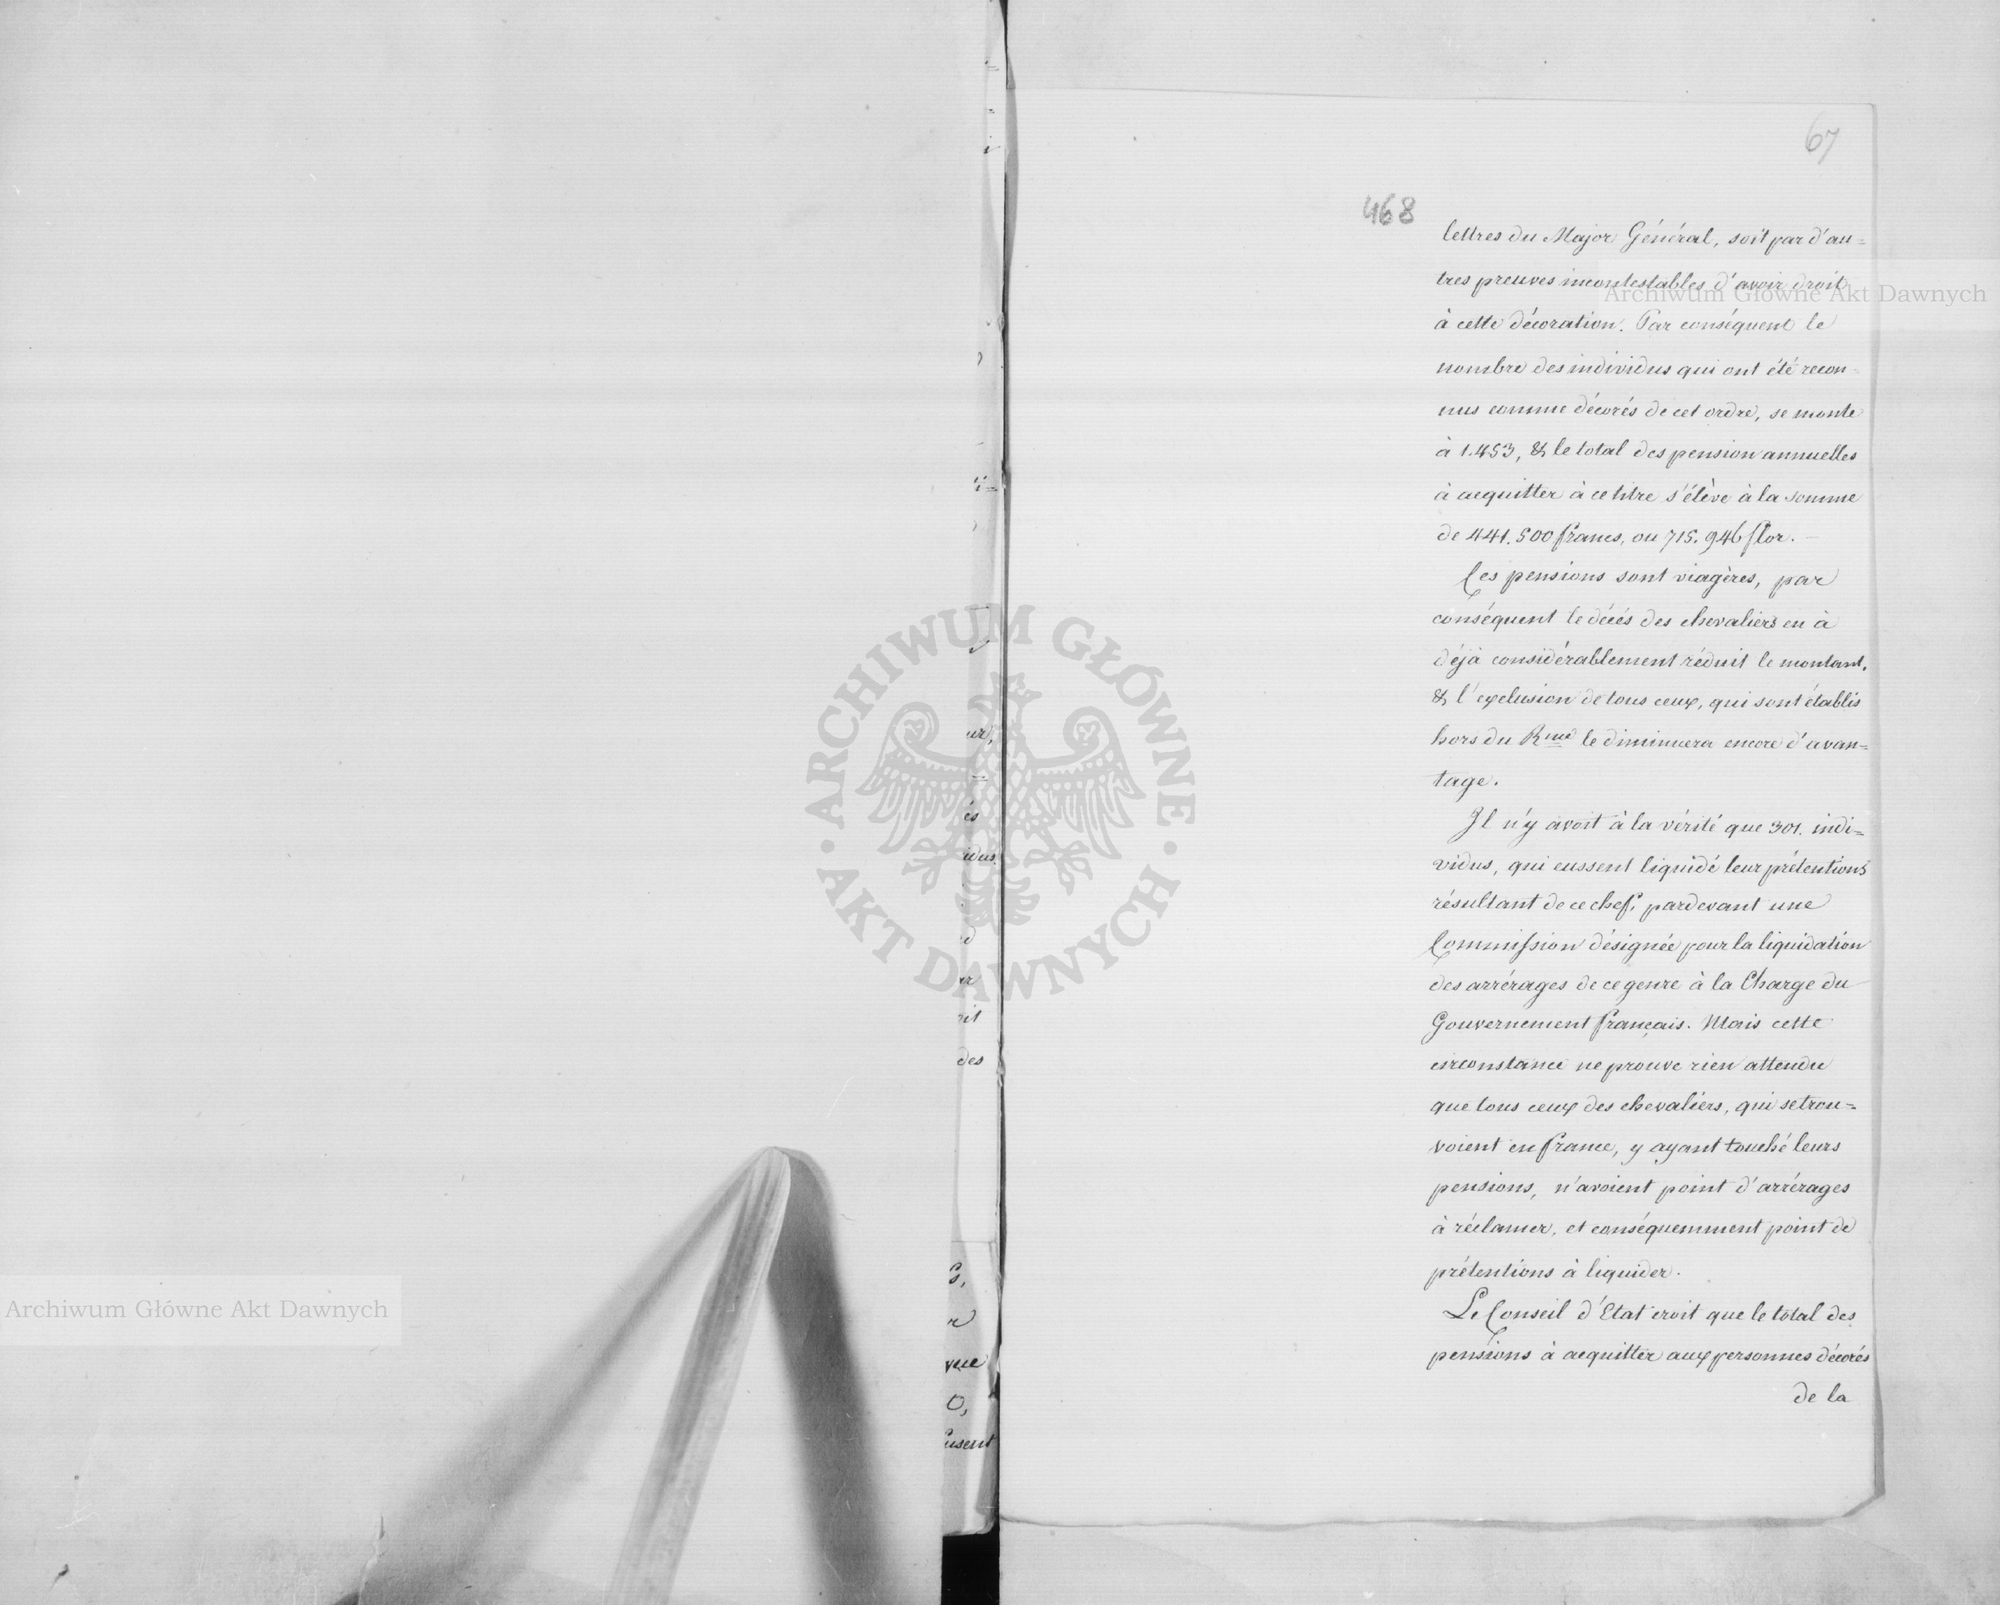 67
468
lettres du Major Général, soit par d'au=
tres preuves incontestables d'avoir droit
à cette décoration. Par conséquent le
nombre des individus qui ont été recon=
nus comme décorés de cet ordre, se monte
à 1.453, & le total des pension annuelles
à acquitter à ce titre s'élève à la somme
de 441.500 francs, ou 715.946 flor. —
Ces pensions sont viagères, par
conséquent le décés des chevaliers en à
déjà considérablement réduit le montant,
& l'exclusion de tous ceux, qui sont établis
hors du Rme le diminuera encore d'avan=
tage.
Il n'y avoit à la vérité que 301. indi=
vidus, qui eussent liquidé leur prétentions
résultant de ce chef, pardevant une
Commission désignée pour la liquidation
des arrérages de ce genre à la Charge du
Gouvernement français. Mais cette
circonstance ne prouve rien attendu
que tous ceux des chevaliers, qui se trou=
voient en france, y ayant touché leurs
pensions, n'avoient point d'arrérages
à réclamer, et conséquemment point de
prétentions à liquider.
Le Conseil d'Etat croit que le total des
pensions à acquitter aux personnes décorés
de la
ur,
és
idus
ar
oit
des
vue
fusent
Archiwum Główne Akt Dawnych
ARCHIWUM GŁÓWNE AKT DAWNYCH
Archiwum Główne Akt Dawnych